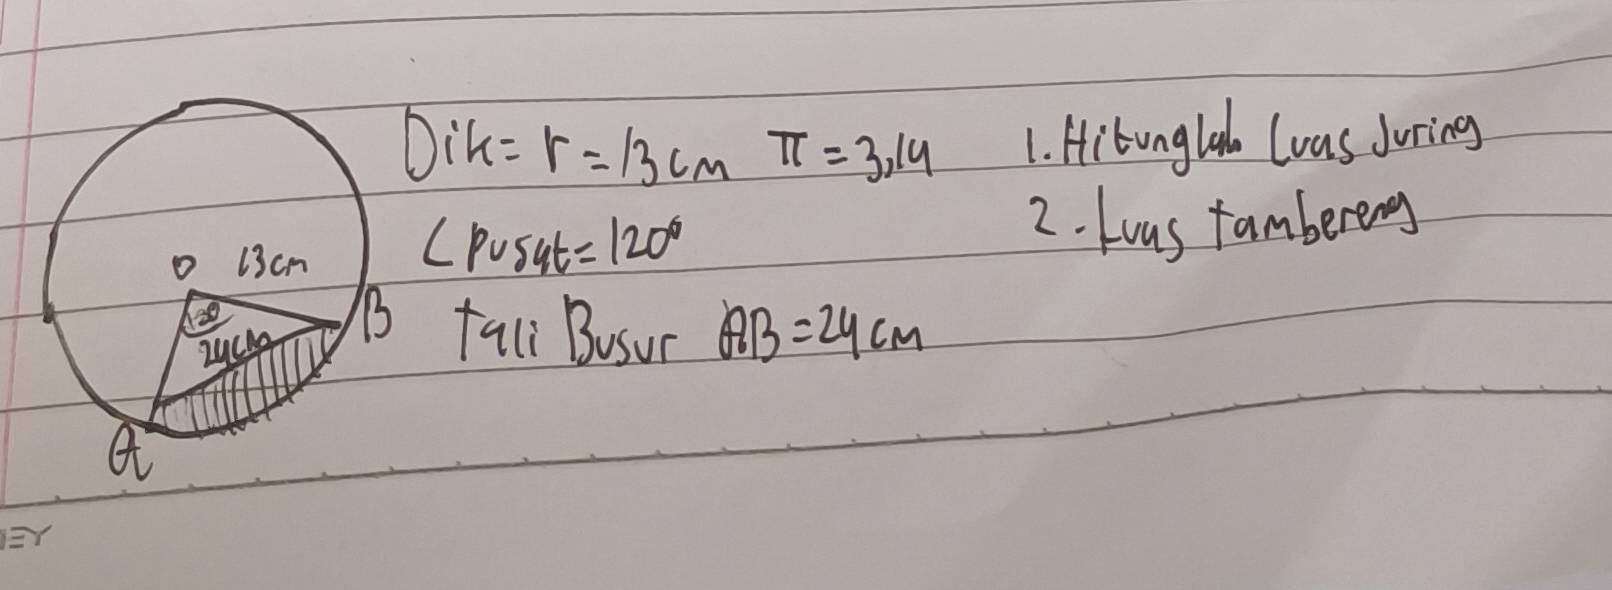 Dik = r = 13 cm π = 3,14
∠ Pusat = 120°
tali Busur AB = 24 cm
1. Hitunglah Luas Juring
2. Luas tambereng
O 13cm
120
24cm
B
A
EY